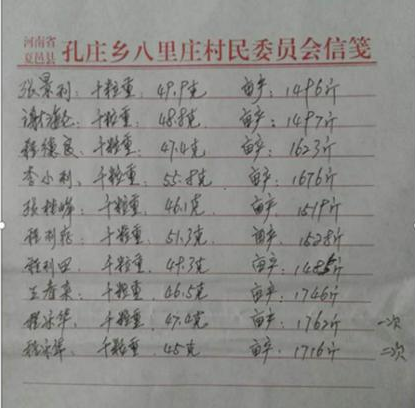 河南省
夏邑县 孔庄乡八里庄村民委员会信笺
张景利：千粒重：49.9克 亩产：1496斤
谢海仓：千粒重：48.8克 亩产：1497斤
程德良：千粒重：47.4克 亩产：1623斤
李小利：千粒重：55.8克 亩产：1676斤
张桂峰：千粒重：46.1克 亩产：1519斤
程利 千粒重：51.3克 亩产：1528斤
程利田：千粒重：49.3克 亩产：1485斤
王 千粒重：46.5克 亩产：1746斤
程 华：千粒重：47.4克 亩产：1762斤 一次
程 华：千粒重：45克 亩产：1716斤 二次